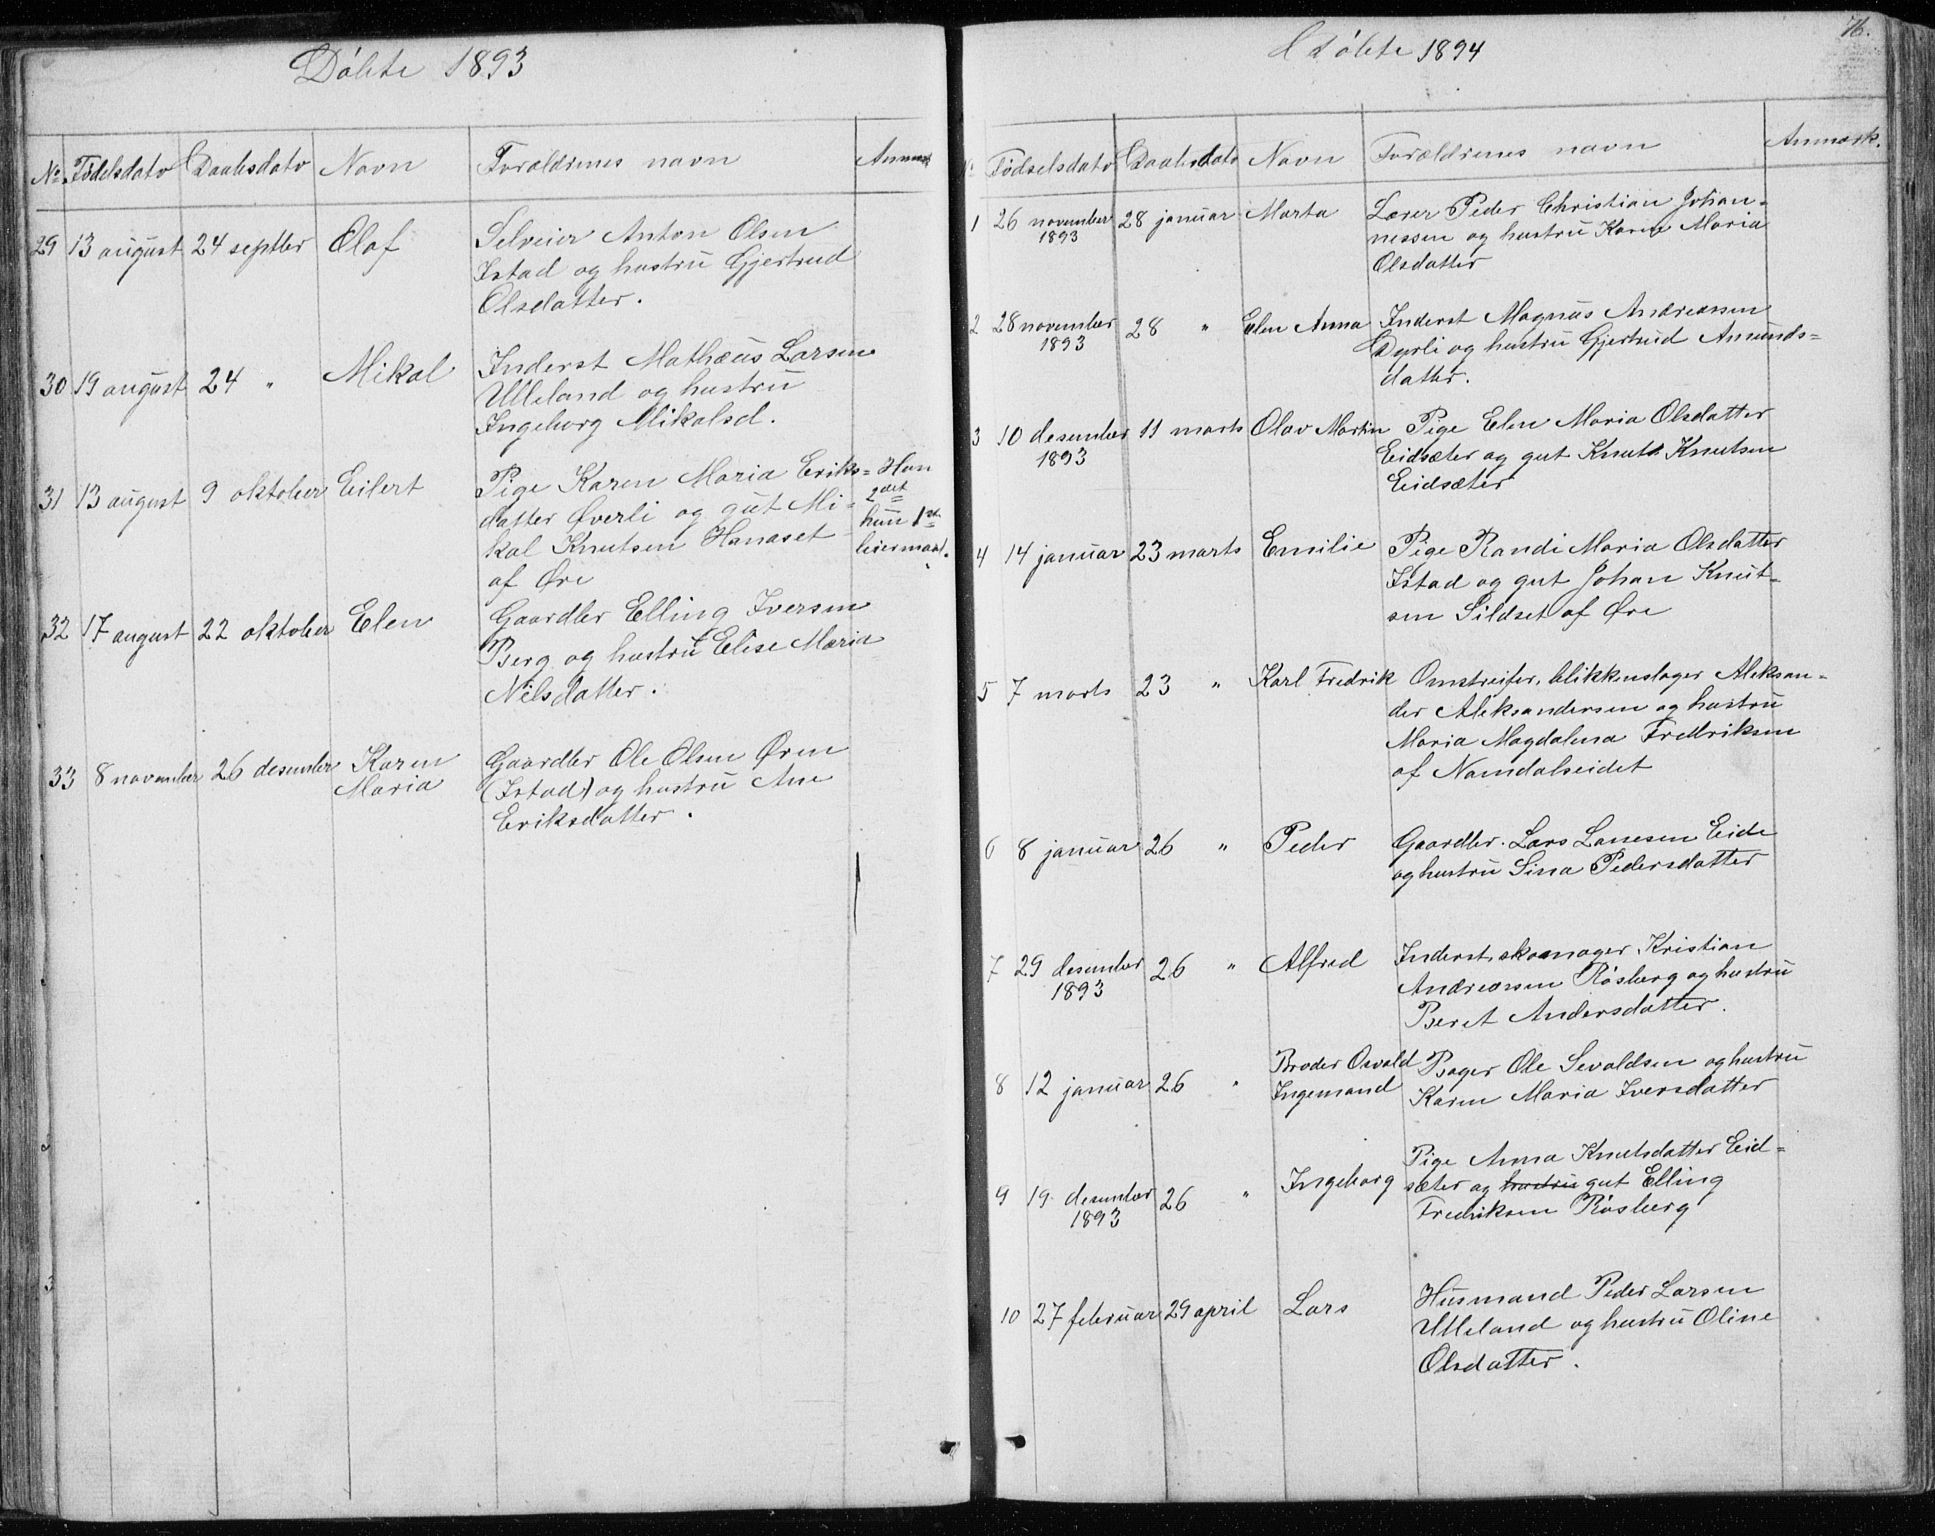 Døbte 1893
No. Fødelsdato Daabsdato Navn Forældrenes navn Anmærk
29 13 august 24 septbr Olaf Selveier Anton Olsen
Istad og hustru Gjertrud
Olsdatter.
30 19 august 24 " Mikal Inderst Mathæus Larsen
Ulleland og hustru
Ingeborg Mikalsd.
31 13 august 9 oktober Eilert Pige Karen Maria Eriks= Han
datter Øverli og gut Mi- 2det
kal Knutsen Hanaset hun 1ste
af Øre leiermaal.
32 17 august 22 oktober Elen Gaardbr Elling Iversen
Berg og hustru Elise Maria
Nilsdatter.
33 8 november 26 desember Karen Gaardbr Ole Olsen Øren
Maria (Istad) og hustru Ane
Eriksdatter.
76.
Døbte 1894
No Fødselsdato Daabsdato Navn Forældrenes navn Anmærk.
1 26 november 28 januar Marta Lærer Peder Christian Johan-
1893 nessen og hustru Karen Maria
Olsdatter
2 28 november 28 " Elen Anna Inderst Magnus Andreassen
1893 Dyrli og hustru Gjertrud Amunds=
datter.
3 10 desember 11 marts Olav Martin Pige Elen Maria Olsdatter
1893 Eidsæter og gut Knut Knutsen
Eidsæter
4 14 januar 23 marts Emilie Pige Randi Maria Olsdatter
Istad og gut Johan Knut-
sen Sildset af Øre
5 7 marts 23 " Karl Fredrik Omstreifer, blikkenslager Aleksan-
der Aleksandersen og hustru
Maria Magdalena Fredriksen
af Namdalseidet
6 8 januar 26 " Peder Gaardbr. Lars Lassesen Eide
og hustru Sina Pedersdatter
7 29 desember 26 " Alfred Inderst, skomager Kristian
1893 Andreassen Røsberg og hustru
Beret Andersdatter.
8 12 januar 26 " Broder Osvald Bager Ole Sevaldsen og hustru
Ingemand Karen Maria Iversdatter
9 19 desember 26 " Ingeborg Pige Anna Knutsdatter Eid=
1893 sæter og hustru gut Elling
Fredriksen Røsberg
10 27 februar 29 april Lars Husmand Peder Larsen
Ulleland og hustru Oline
Olsdatter.